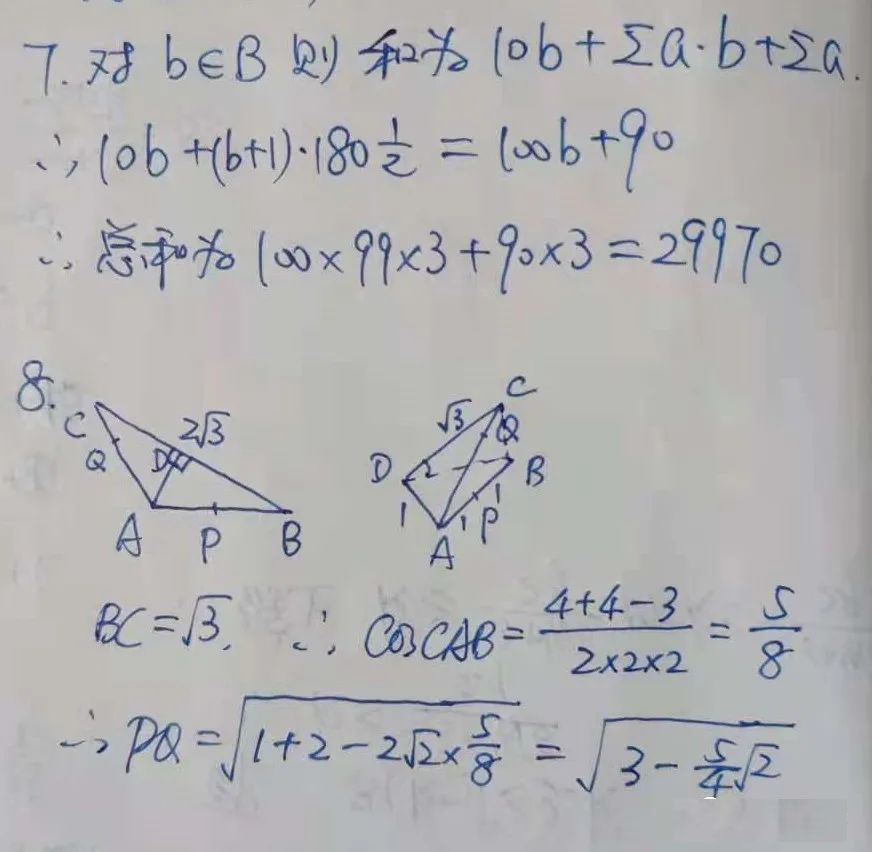 7. 对 b∈B 则 和为 10b+Σa·b+Σa.
∴ 10b+(b+1)·180 1/2 = 100b+90
∴ 总和为 100×99×3+90×3=29970
8.
C Q D 2√3 A P B
C √3 Q D 2 B 1 1 P 1 A
BC=√3. ∴ cosCAB= (4+4-3)/(2×2×2) = 5/8
∴ PQ = √(1+2-2√2×5/8) = √(3-5/4√2)